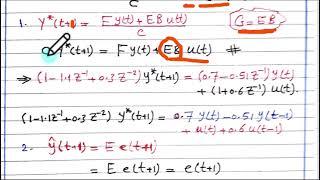 C
1. y*(t+1) = Fy(t) + EB u(t) / C
G = EB
C y*(t+1) = F y(t) + EB u(t) #
⇒ (1-1.1z⁻¹+0.3z⁻²) y*(t+1) = (0.7-0.51z⁻¹) y(t)
+ (1+0.6z⁻¹) u(t).
(1-1.1z⁻¹+0.3z⁻²) y*(t+1) = 0.7 y(t) - 0.51 y(t-1)
+ u(t) + 0.6 u(t-1)
2. ỹ(t+1) = E e(t+1)
= E e(t+1) = e(t+1)